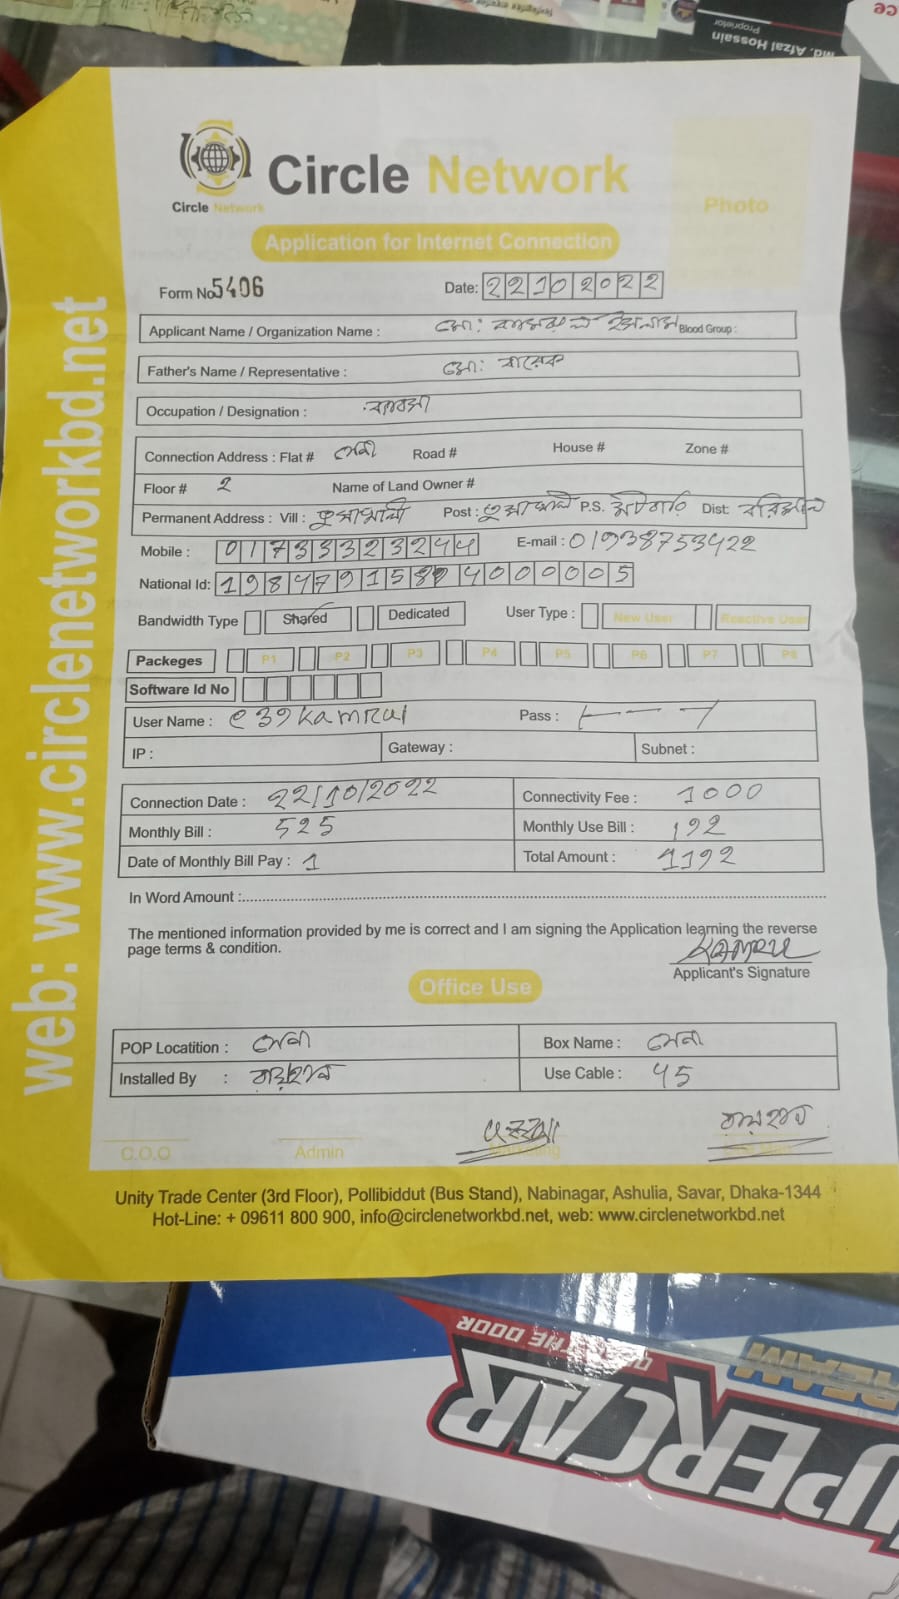 Md. Afzal Hossain
Proprietor
Circle Network
Circle Network
Photo
Application for Internet Connection
Form No. 5406
Date: 22102022
Applicant Name / Organization Name : মো: কামরুল ইসলাম Blood Group :
Father's Name / Representative : মো: খালেক
Occupation / Designation : ব্যবসা
Connection Address : Flat # Road # House # Zone #
Floor # 2 Name of Land Owner #
Permanent Address : Vill : Post : P.S. Dist: বরিশাল
Mobile : 01733323244 E-mail : 01938753422
National Id: 4000005
Bandwidth Type Shared Dedicated User Type : New User Reactive User
Packeges P1 P2 P3 P4 P5 P6 P7 P8
Software Id No
User Name : e39kamrul Pass :
IP : Gateway : Subnet :
Connection Date : 22/10/2022 Connectivity Fee : 1000
Monthly Bill : 525 Monthly Use Bill : 192
Date of Monthly Bill Pay : 1 Total Amount : 1192
In Word Amount :
The mentioned information provided by me is correct and I am signing the Application learning the reverse
page terms & condition.
KAMRU
Applicant's Signature
Office Use
POP Locatition : Box Name :
Installed By : Use Cable : 45
C.O.O Admin Marketing
Unity Trade Center (3rd Floor), Pollibiddut (Bus Stand), Nabinagar, Ashulia, Savar, Dhaka-1344
Hot-Line: + 09611 800 900, info@circlenetworkbd.net, web: www.circlenetworkbd.net
web: www.circlenetworkbd.net
THE DOOR